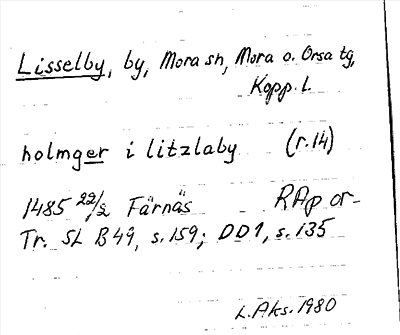 Lisselby, by, Mora sn, Mora o. Orsa tg,
Kopp. l.
holmger i litzlaby (r.14)
1485 22/2 Färnäs RAp or-
Tr. SL B49, s.159; DD1, s.135
L.Aks. 1980